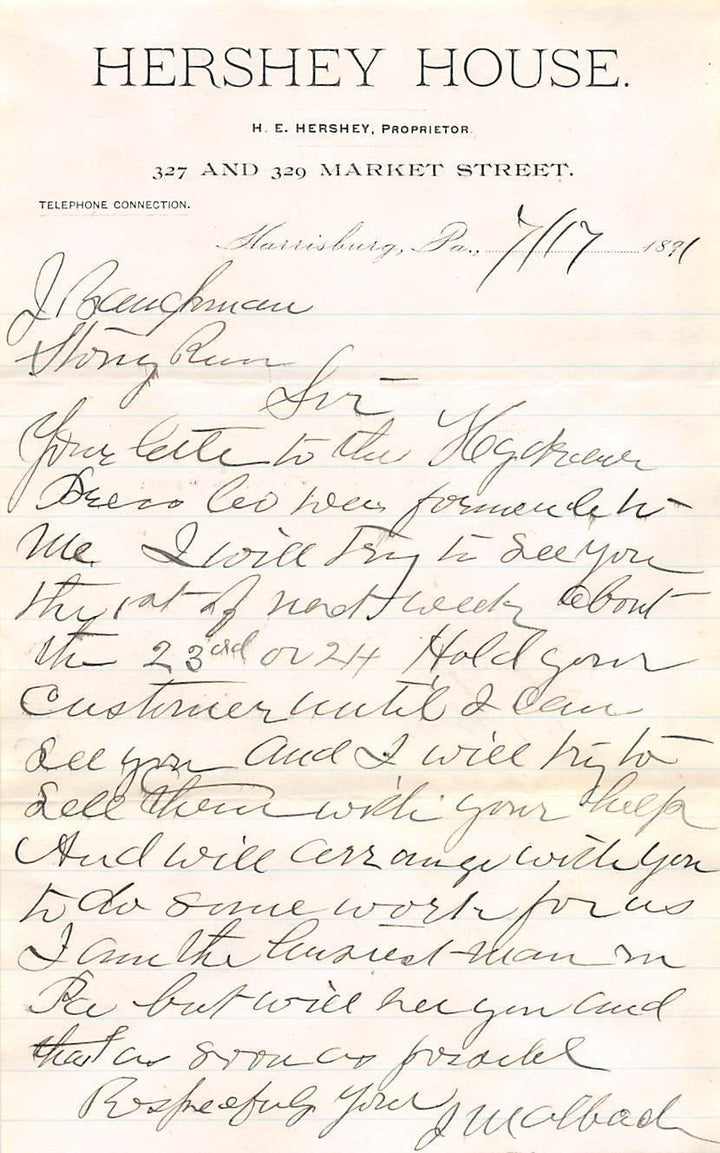 HERSHEY HOUSE.
H. E. HERSHEY, PROPRIETOR.
327 AND 329 MARKET STREET.
TELEPHONE CONNECTION.
Harrisburg, Pa., 7/17 1891
J Baughman
Stony Run
Sir
Your lette to the
Co was
Me I will Try to See You
the of next week about
the 23rd or 24 Hold your
Customer until I can
See you And I will try to
Sell them with your help
And will arrange with you
to do some work for us
I am the busiest man in
Pa but will see you and
that as soon as possibl
Respectfuly Your